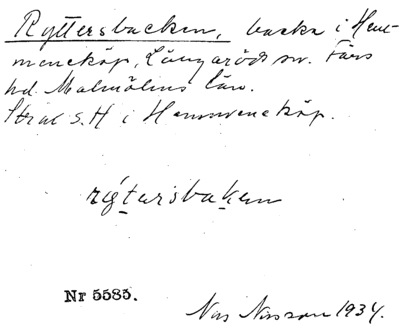 Ryttersbacken, backa i Hem-
meneköp, Långaröds sn. Färs
hd. Malmöhus län.
Strax s. H i Hemmeneköp.
rýtersbaken
Nr 5585.
Nils Nilsson 1934.